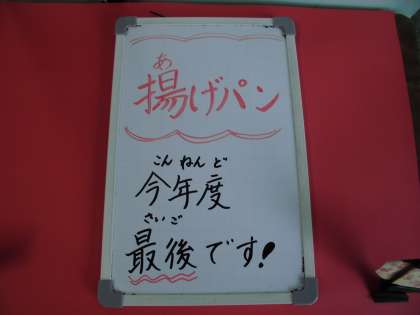 あ
揚げパン
こんねんど
今年度
さいご
最後です!